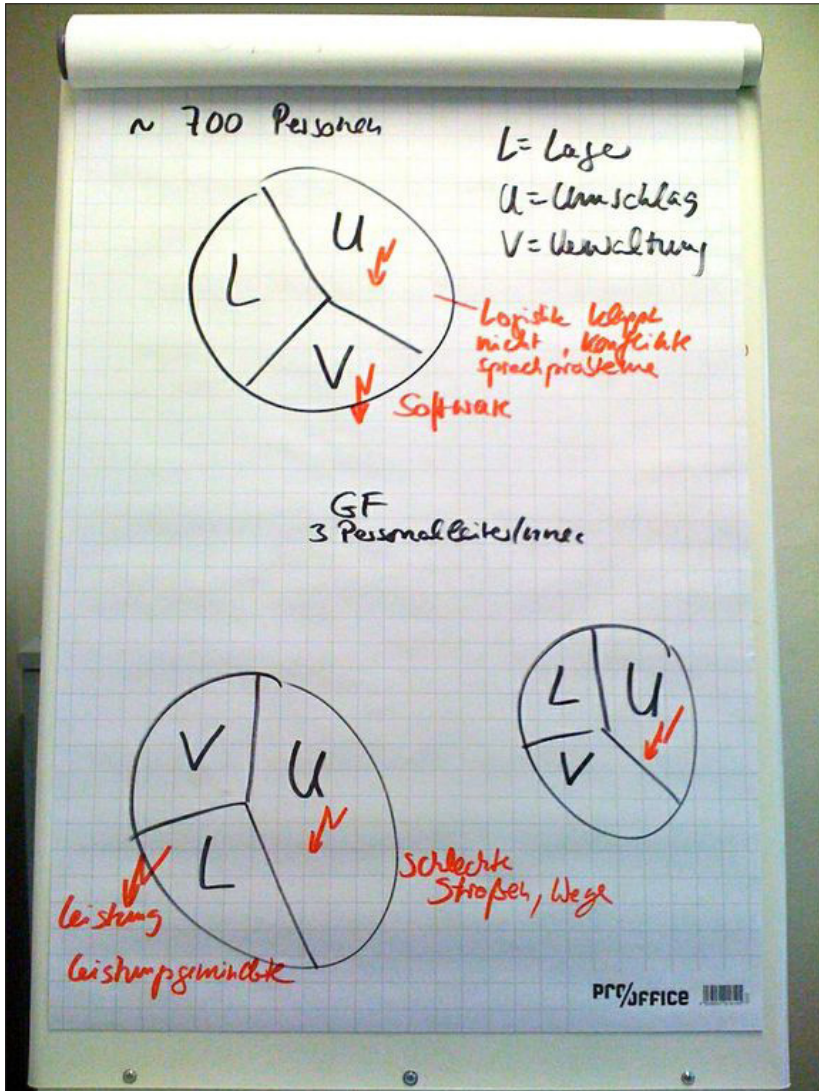 ~ 700 Personen
L = Lager
U = Umschlag
V = Verwaltung
U
L
V
Logistik klappt
nicht, Konflikte
Sprachprobleme
Software
GF
3 Personalleiter/innen
L
U
V
V
U
L
Schlechte
Straßen, Wege
Leistung
Leistungsgeminderte
PRO/OFFICE